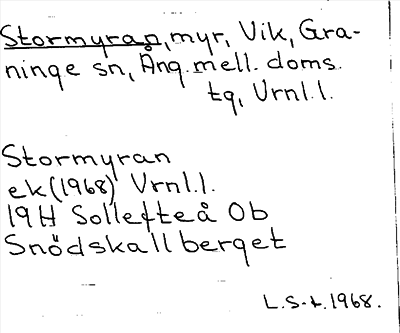 Stormyran, myr, Vik, Gra-
ninge sn, Ång. mell. doms.
tg, Vrnl.l.
Stormyran
ek (1968) Vrnl.l.
19H Sollefteå 0b
Snödskallberget
L.S-t. 1968.